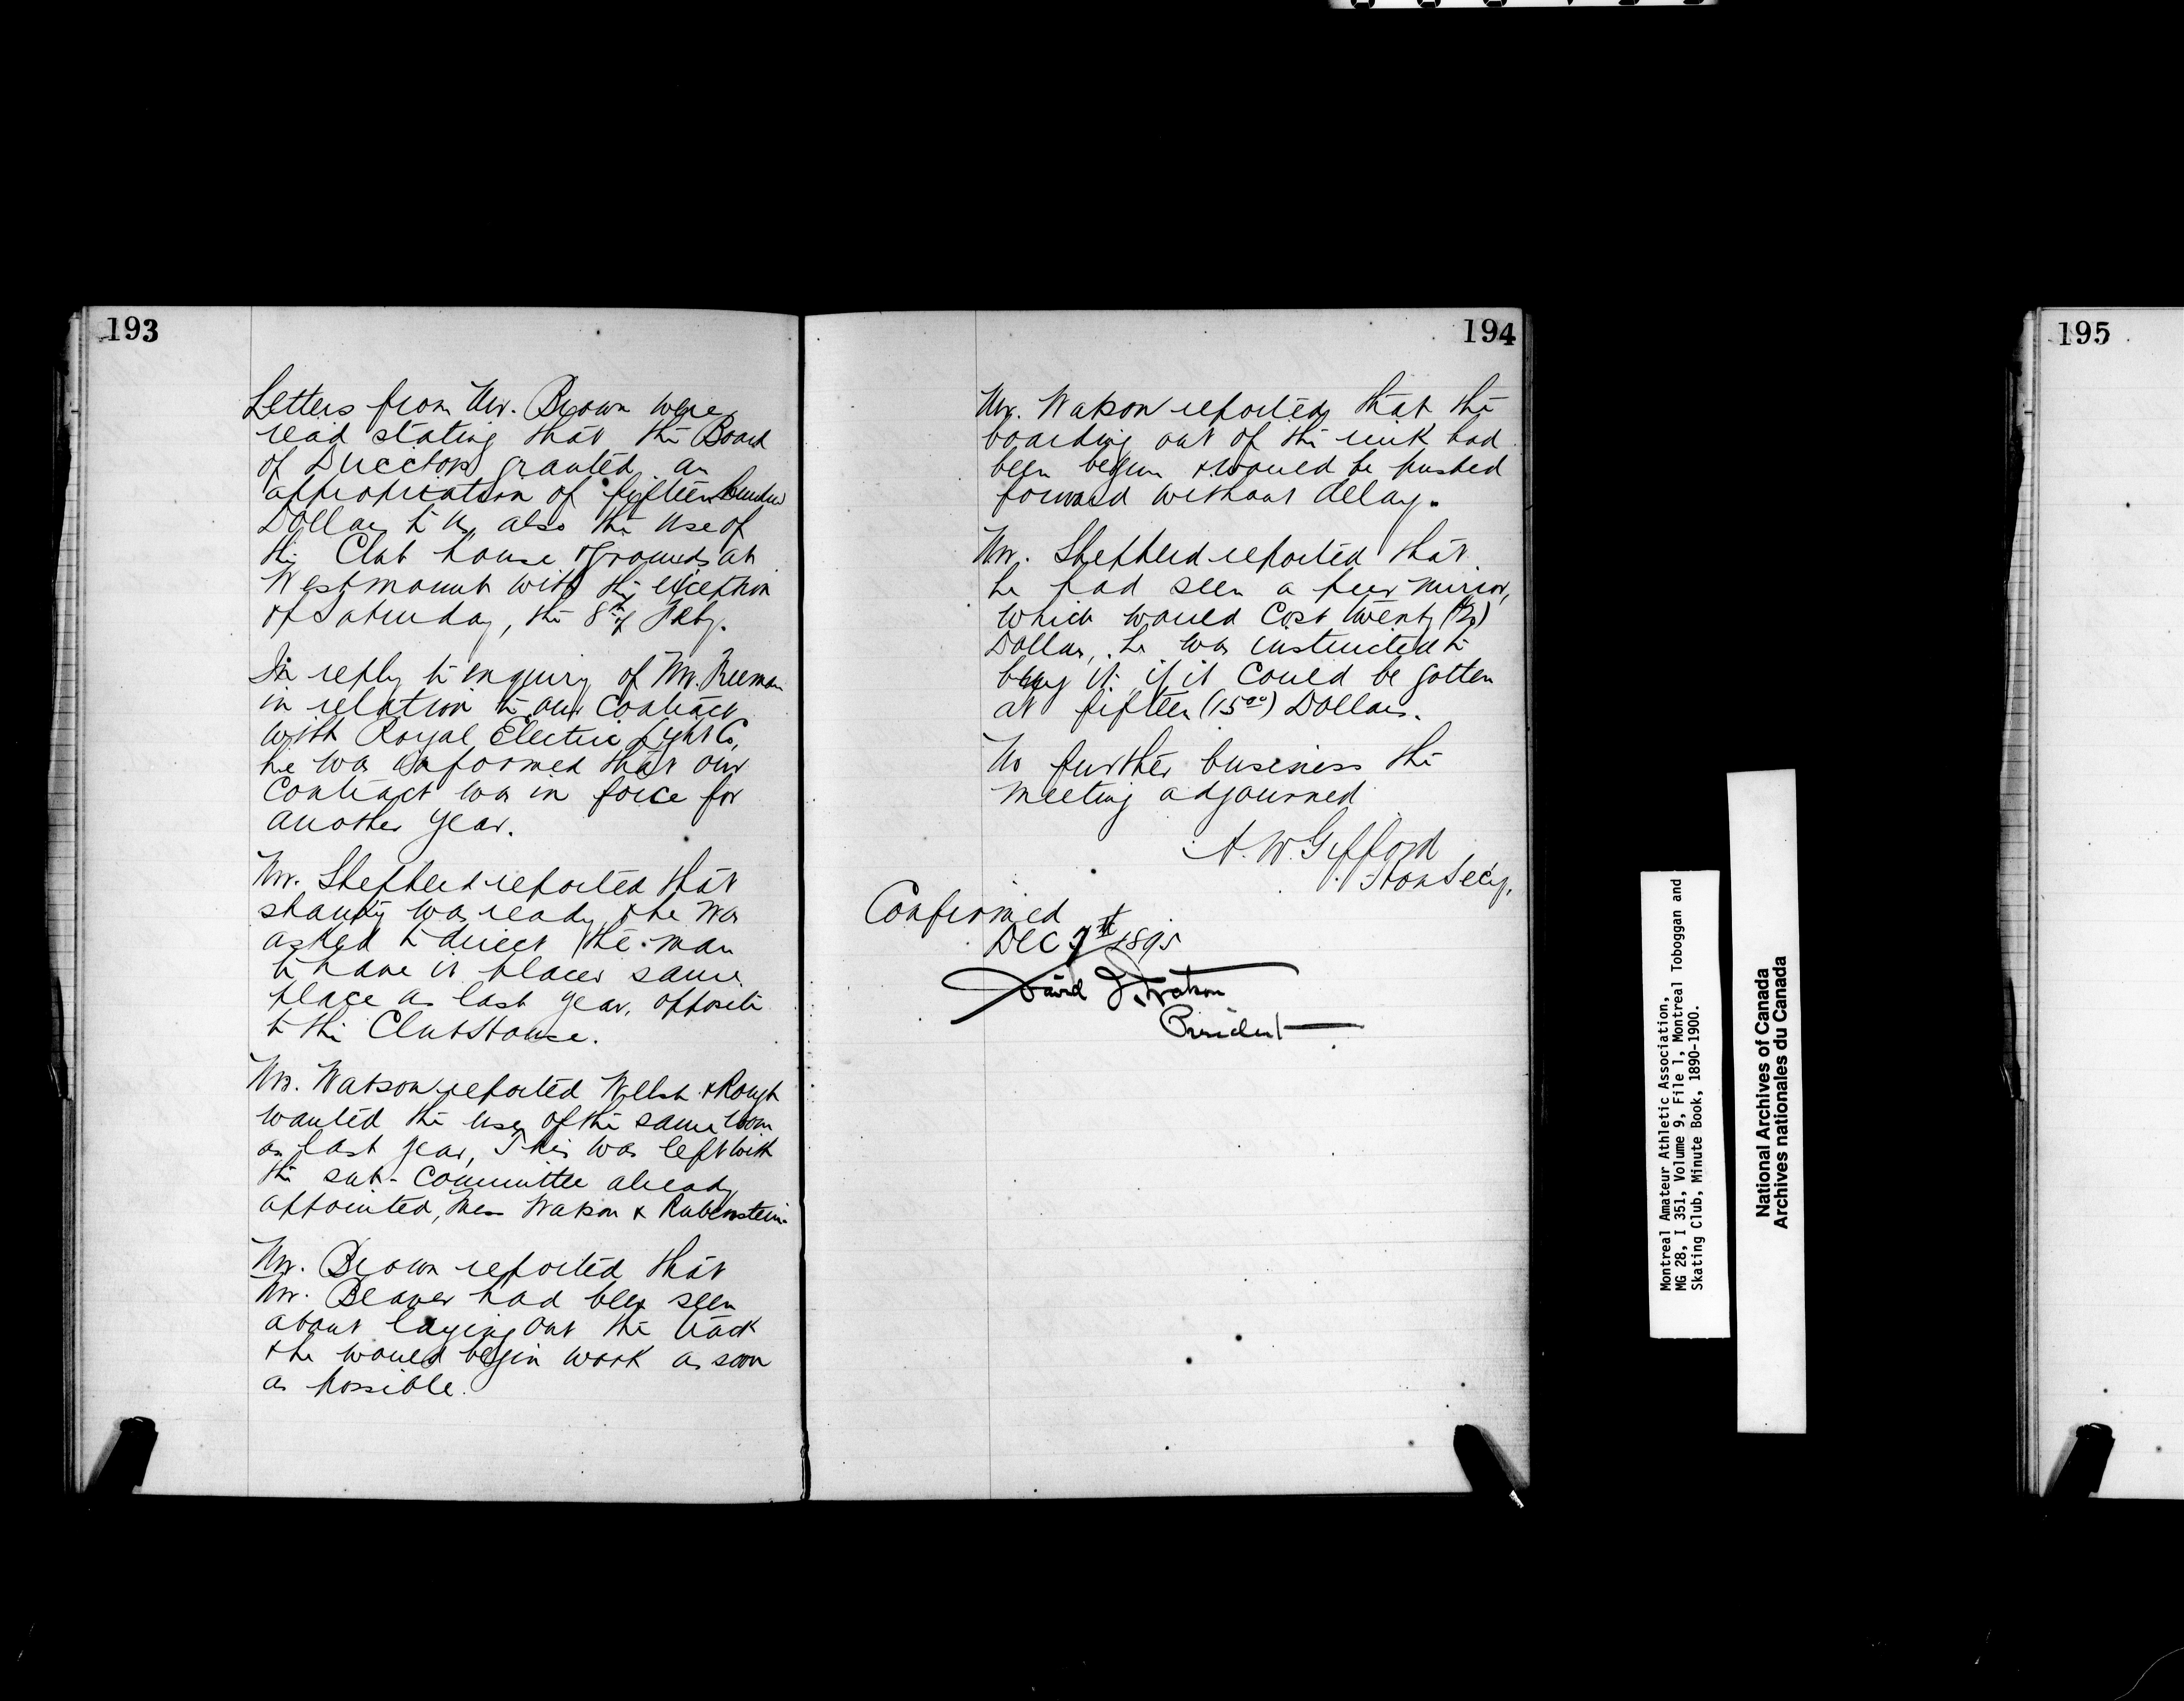 193
Letters from Mr. Brown were
read stating that the Board
of Directors granted an
appropriation of fifteen hundred
Dollars to us, also the use of
the Club house & grounds at
Westmount with the exception
of Saturday, the 8th of Feby.
In reply to enquiry of Mr.
in relation to our Contract
with Royal Electric Light Co,
he was informed that our
Contract was in force for
another year.
Mr. Shepherd reported that
shanty was ready, & he was
asked to direct the man
to have it placed same
place as last year, opposite
to the Club House.
Mr. Watson reported Welsh & Rough
wanted the use of the same room
as last year, This was left with
the sub-Committee already
appointed, Mess Watson & Rubenstein.
Mr. Brown reported that
Mr. Beaver had been seen
about laying out the track
& he would begin work as soon
as possible.
194
Mr. Watson reported that the
boarding out of the rink had
been begun & would be pushed
forward without delay.
Mr. Shepherd reported that
he had seen a pier mirror,
which would cost twenty (20)
Dollars, he was instructed to
buy it if it could be gotten
at fifteen (15.00) Dollars.
No further business the
meeting adjourned
A. W. Gifford
Hon Secy.
Confirmed
Dec 1895
David Watson
President
Montreal Amateur Athletic Association,
MG 28, I 351, Volume 9, File 1, Montreal Toboggan and
Skating Club, Minute Book, 1890-1900.
National Archives of Canada
Archives nationales du Canada
195